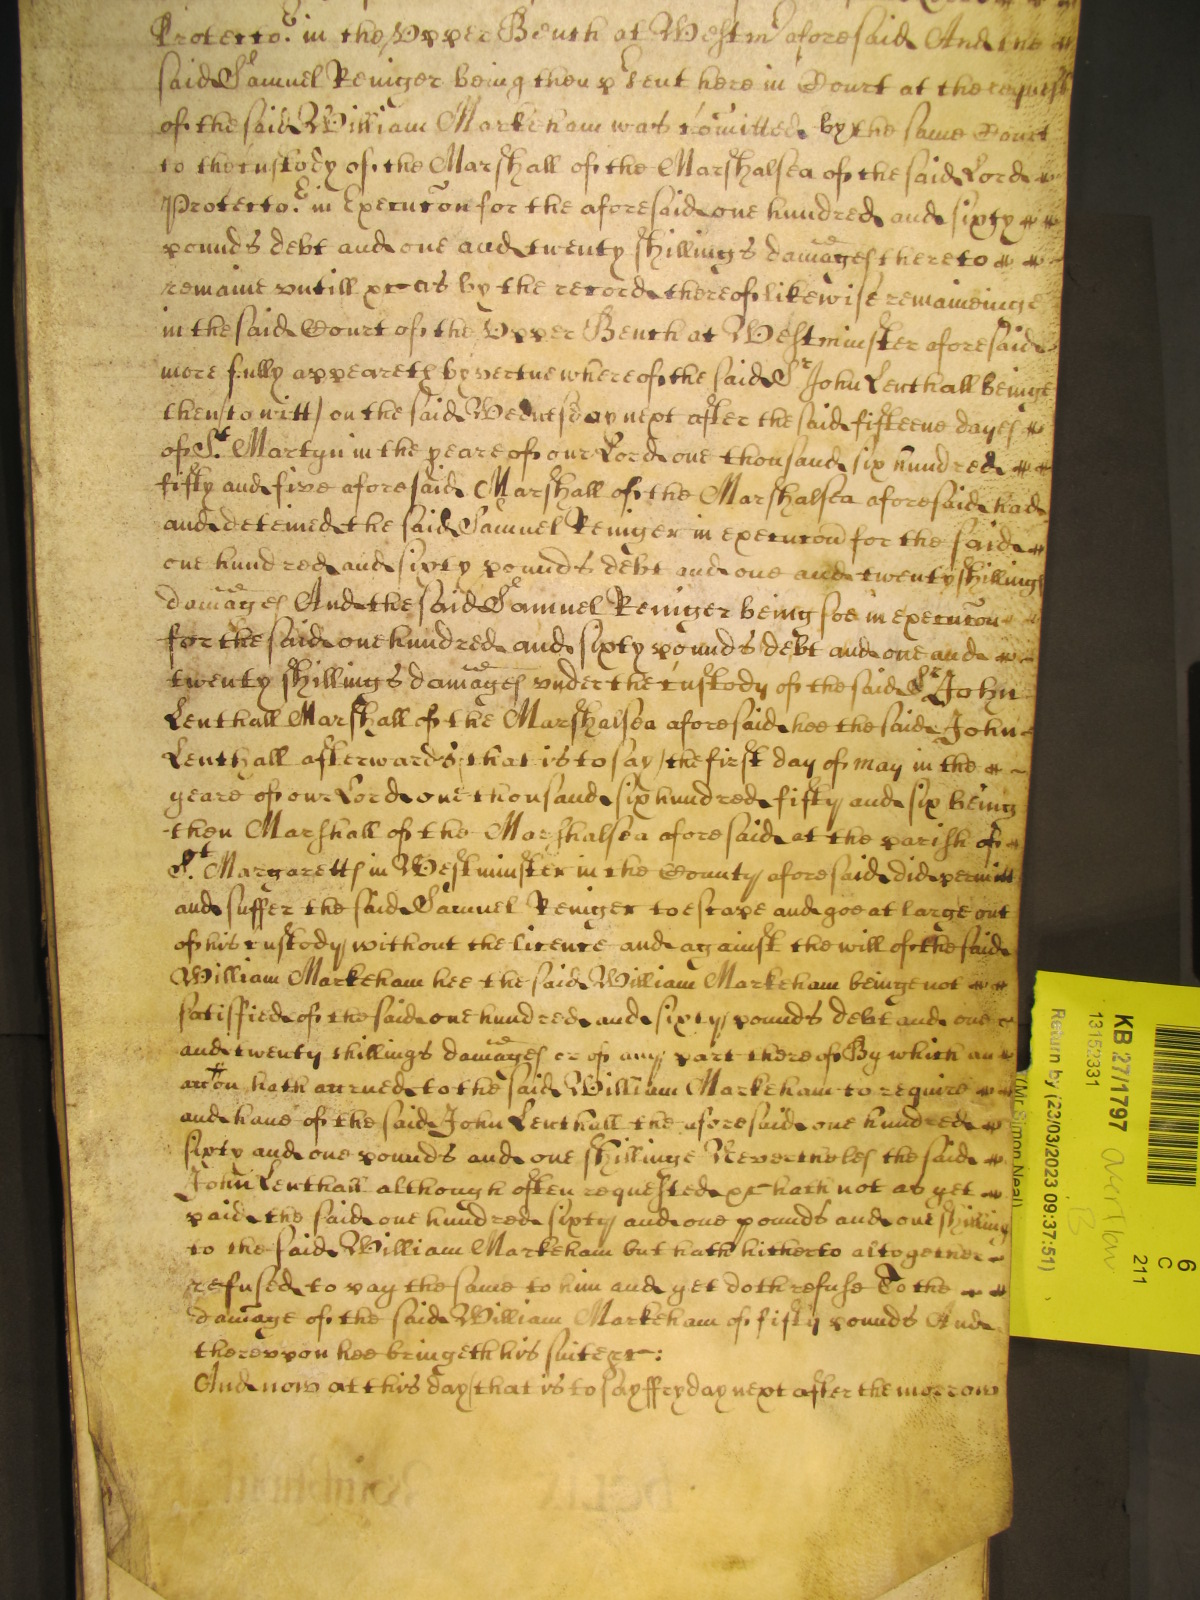 Protecto.r in the Upper Bench at Westmr aforesaid And the
said Samuel Reniger being then pesent here in Court at the request
of the said William Markeham was comitted by the same Court
to the custody of the Marshall of the Marshalsea of the said Lord
Protecto.r in Execucon for the aforesaid one hundred and sixty
pounds debt and one and twenty shillings damages there to
remaine untill &c as by the record thereof likewise remaineinge
in the said Court of the Upper Bench at Westminster aforesaid
more fully appeareth by vertue whereof the said Sr John Lenthall beinge
then to witt on the said Wednesday next after the said fifteene dayes
of St. Martyn in the yeare of our Lord one thousand six hundred
fifty and five aforesaid Marshall of the Marshalsea aforesaid had
and deteined the said Samuel Reniger in execucon for the said
one hundred and sixty pounds debt and one and twenty shillings
damages And the said Samuel Reniger being soe in execucon
for the said one hundred and sixty pounds debt and one and
twenty shillings damages under the custody of the said Sr John
Lenthall Marshall of the Marshalsea aforesaid hee the said John
Lenthall afterwards that is to say the first day of may in the
yeare of our Lord one thousand six hundred fifty and six being
then Marshall of the Marshalsea aforesaid at the parish of
St. Margaretts in Westminster in the County aforesaid did permitt
and suffer the said Samuel Reniger to escape and goe at large out
of his custody without the licence and against the will of the said
William Markeham hee the said William Markeham beinge not
satisfied of the said one hundred and sixty pounds debt and one
and twenty shillings damages or of any part thereof By which an
accon hath accrued to the said William Markeham to require
and have of the said John Lenthall the aforesaid one hundred
sixty and one pounds and one shillinge Neverthelesse the said
John Lenthall although often requested &c hath not as yet
paid the said one hundred sixty and one pounds and one shilling
to the said William Markeham but hath hitherto altogether
refused to pay the same to him and yet doth refuse To the
damage of the said William Markeham of fifty pounds And
thereupon hee bringeth his suite &c:
And now at this day that is to say ffryday next after the morrow
KB 27/1797
13152331
Return by (23/03/2023 09:37:51)
(Mr Simon Neal)
6
C
211